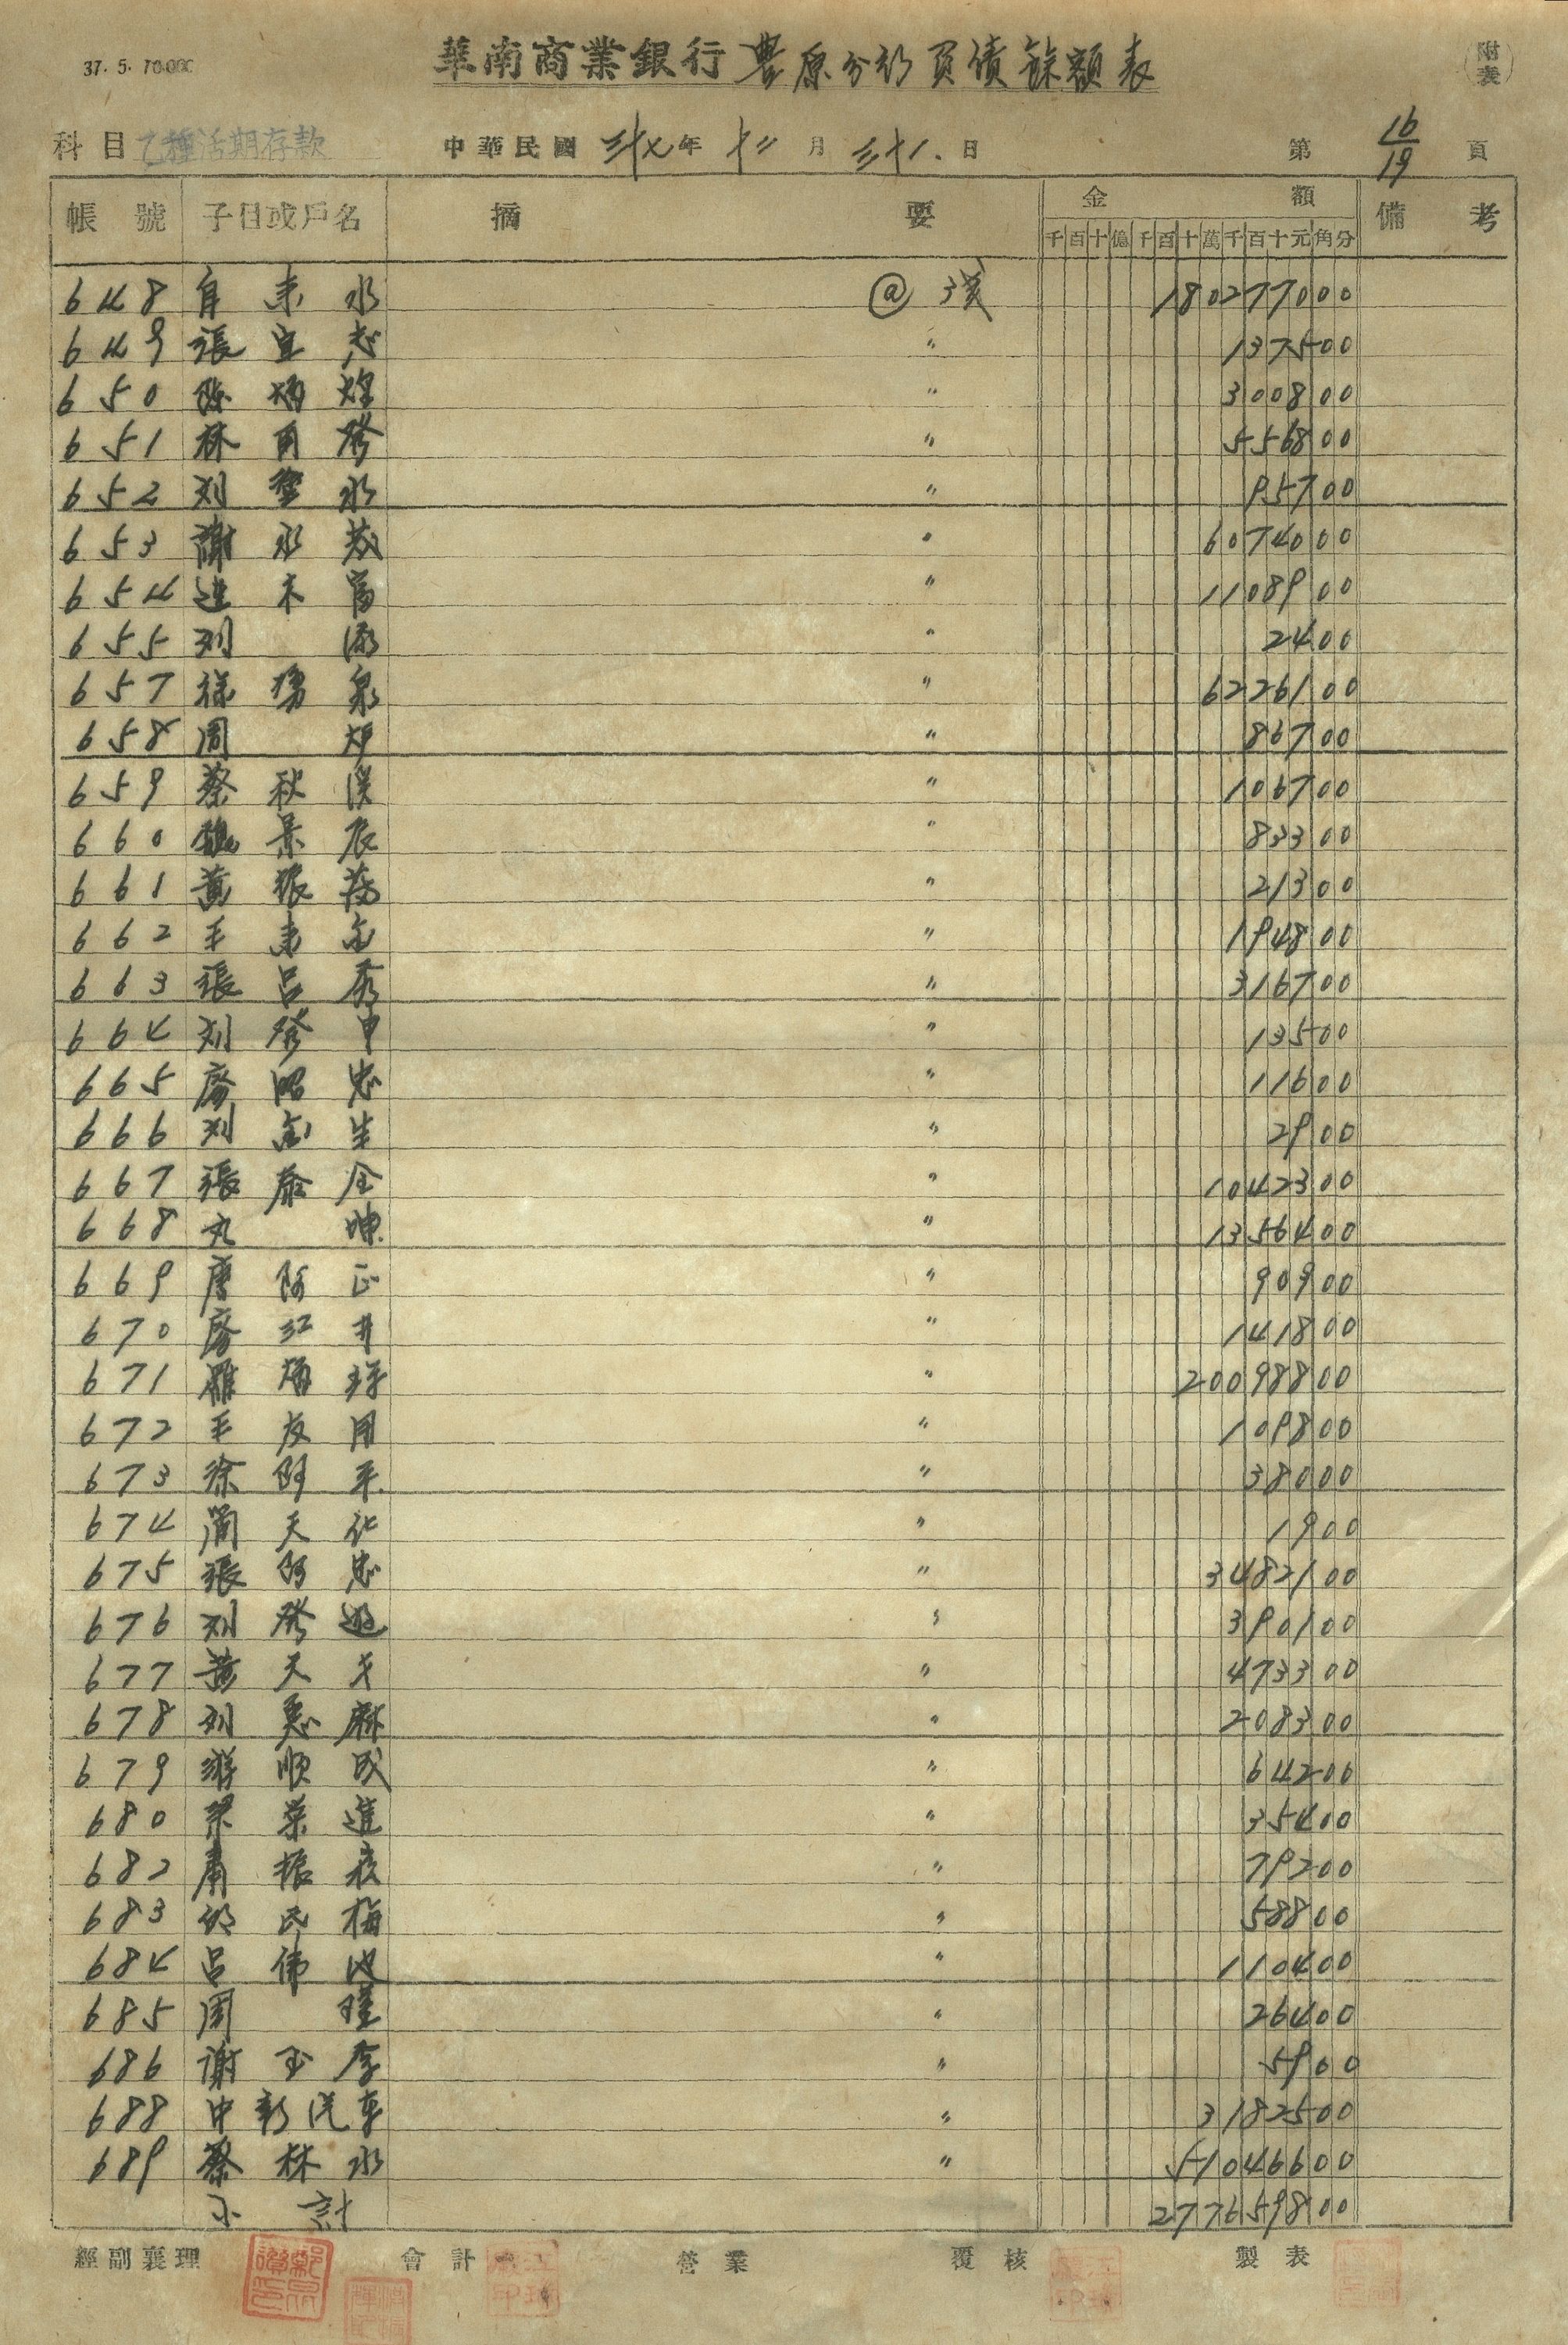 37. 5. 70.000
華南商業銀行豊原分行買債餘額表
附表
科目 乙種活期存款 中華民國 三十七年 十二月 三十一日 第 16/19 頁
帳號 子目或戶名 摘要 金額 備考
千百十億千百十萬千百十元角分
648 自来水 @ 1802770 00
649 張宜志 〃 1375 00
650 陈炳煌 〃 3008 00
651 林再發 〃 5568 00
652 刘塗水 〃 957 00
653 謝水茂 〃 60740 00
654 連木富 〃 11089 00
655 刘添 〃 24 00
657 泉 〃 62261 00
658 周炉 〃 867 00
659 蔡秋溪 〃 1067 00
660 魏景辰 〃 833 00
661 黃振 〃 213 00
662 王来金 〃 1948 00
663 張呂秀 〃 3167 00
664 刘發甲 〃 135 00
665 廖昭忠 〃 116 00
666 刘金生 〃 29 00
667 張泰全 〃 10423 00
668 坤 〃 13564 00
669 唐阿正 〃 909 00
670 廖紅井 〃 1418 00
671 羅 〃 200988 00
672 王友用 〃 1098 00
673 徐阿平 〃 380 00
674 蘭天化 〃 19 00
675 張阿忠 〃 34821 00
676 刘發 〃 3901 00
677 黃天才 〃 4733 00
678 刘惠麻 〃 2083 00
679 游順成 〃 642 00
680 梁榮進 〃 354 00
682 振 〃 792 00
683 邱民梅 〃 588 00
684 呂傳池 〃 1104 00
685 周瑾 〃 264 00
686 謝玉李 〃 59 00
688 中新汽車 〃 31825 00
689 蔡林水 〃 510466 00
小計 2776598 00
經副襄理 會計 營業 覆核 製表